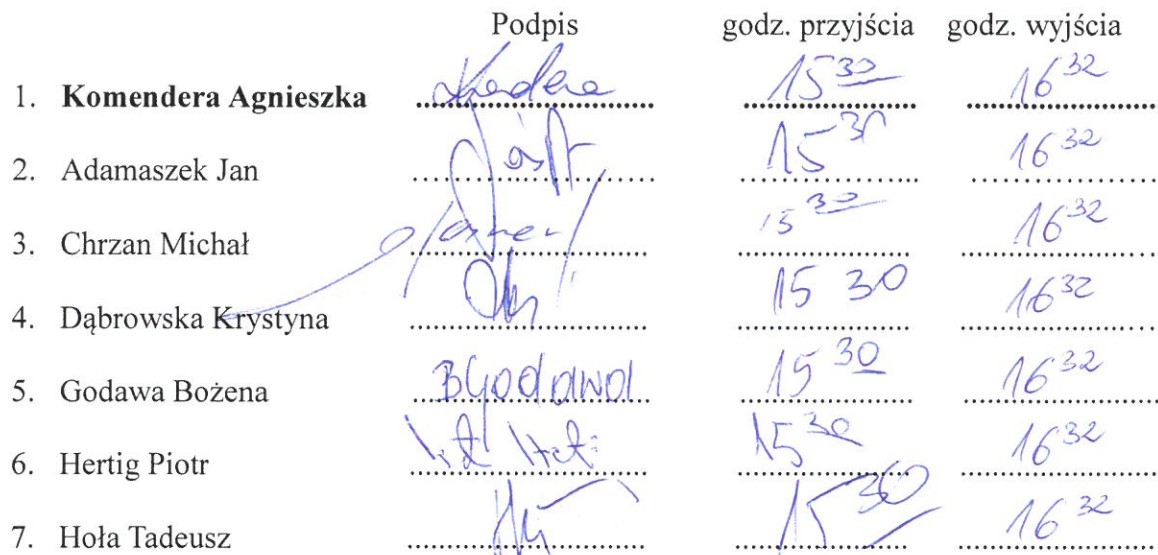 Podpis godz. przyjścia godz. wyjścia
1. Komendera Agnieszka 15 30 16 32
2. Adamaszek Jan 15 30 16 32
3. Chrzan Michał 15 30 16 32
4. Dąbrowska Krystyna 15 30 16 32
5. Godawa Bożena BGodawa 15 30 16 32
6. Hertig Piotr 15 30 16 32
7. Hoła Tadeusz 15 30 16 32